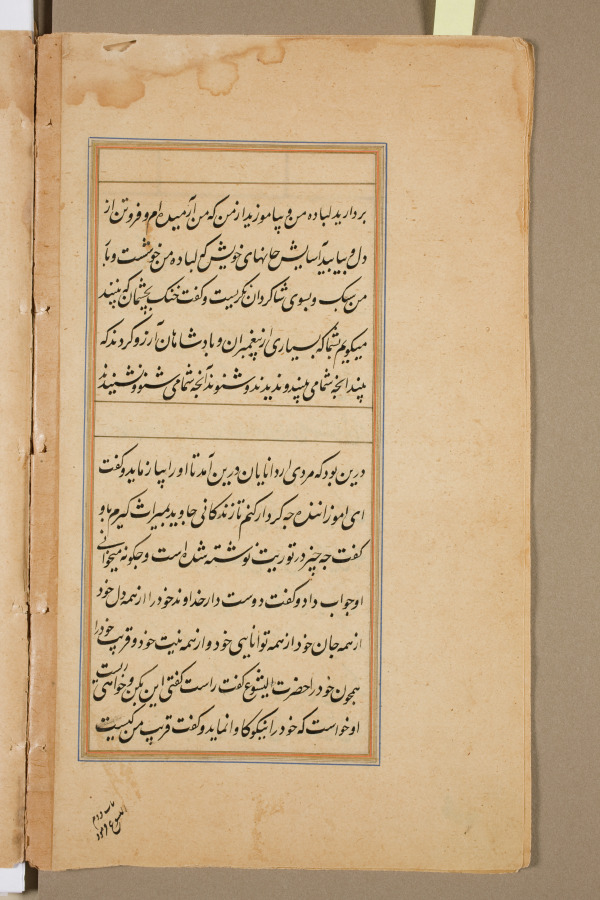 بردارید لباده من و بیاموزید از من که من آرمیده ام و فروتن از
دل و بیابید آسایش جانهای خویش که لباده من خوشست و بار
من سبک و بسوی شاکردان نکریست و گفت خنک بچشمان که بینند
میکویم بشما که بسیاری از پیغمبران و پادشاهان آرزو کردند که
بینند آنچه شما می بینید و ندیدند و شنوند آنچه شما می شنوید و نشنیدند
درین بود که مردی از دانایان درین آمد تا او را بیازماید و گفت
ای اموزاننده چه کردار کنم تا زندکانی جاوید بمیراث کیرم باو
گفت چه چیز در توریت نوشته شده است و چکونه میخوانی
او جواب داد و گفت دوست دار خداوند خود را از همه دل خود
از همه جان خود از همه توانایی خود و از همه نیت خود و قریب خود را
همچون خود را حضرت ایشوع گفت راست گفتی این بکن و خواهی زیست
او خواست که خود را نیکوکار وانماید و گفت قریب من کیست
باب دوم